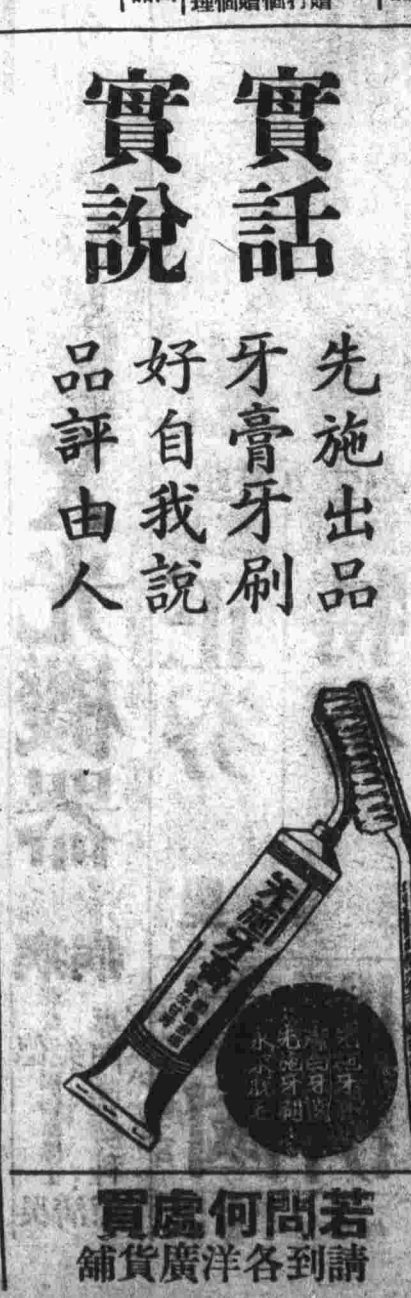 實話
實說
先施出品
牙膏牙刷
好自我說
品評由人
先施牙膏
先施牙刷
永不脫毛
若問何處買
請到各洋廣貨舖